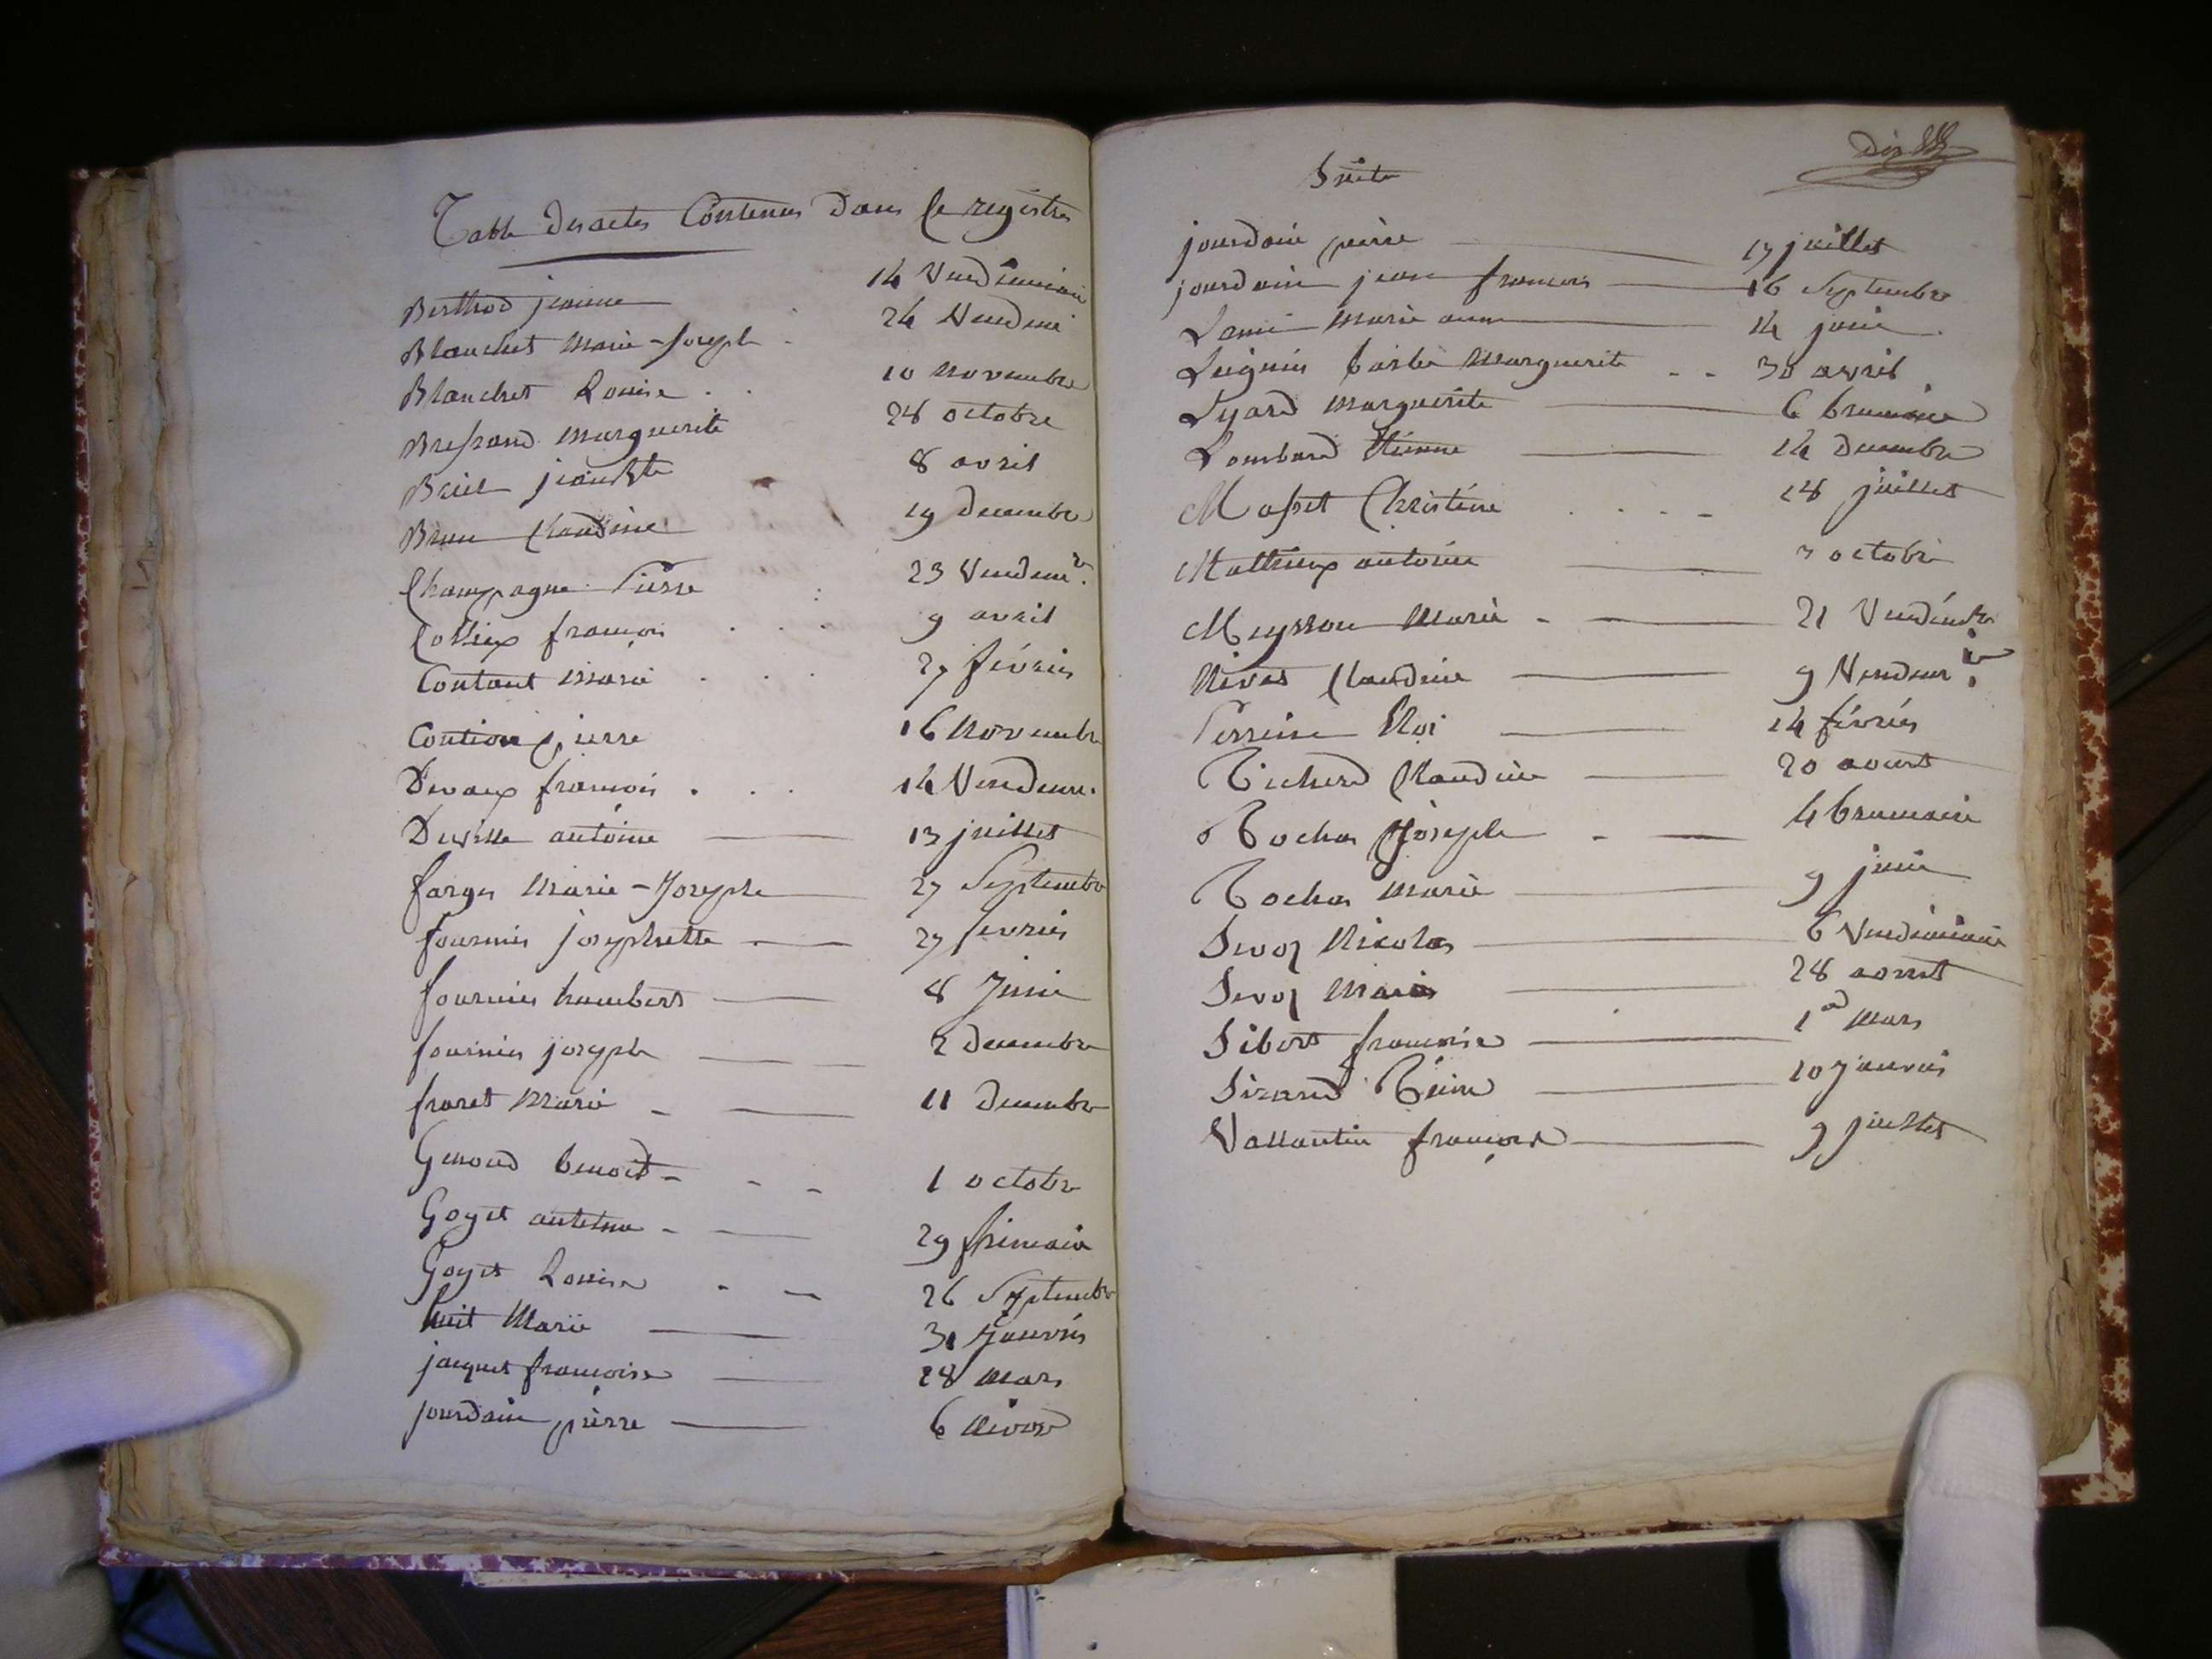 Table Des actes Contenus Dans le registre
Berthod jeanne 14 Vendemiaire
Blanchet Marie-Joseph 24 Vendemi
Blanchet Louise . . 10 Novembre
Bressand Marguerite 28 octobre
jean Bte 8 avril
Brun Claudine 19 Decembre
Champagne Pierre 23 Vendemre.
Collieux françois . . . 9 avril
Contant Marie . . . 27 février
pierre 16 Novembre
Devaux françois . . . 14 Vendemre.
Deville antoine — 13 juillet
farges Marie-Joseph — 27 Septembre
fournier josephette — 27 fevrier
fournier humbert — 8 Juin
fournier joseph — 2 Decembre
fraret Marie — 11 Decembre
Genoud benoit - - - 1 octobre
Goyet antelme - — 29 frimaire
Goyet Louise - — 26 Septembre
huit Marie — 31 Janvier
jacquet françoise — 28 Mars
jourdain pierre — 6 Nivose
Suite
jourdain pierre — 17 juillet
jourdain jean françois — 16 Septembre
Lami Marie anne — 14 juin
barbe Marguerite - - 30 avril
Lyard Marguerite — 6 brumaire
Lombard Etienne — 14 Decembre
Masset Christine . . . - 28 juillet
Mathieux antoine — 3 octobre
Meysson Marie - — 21 Vendémre
Nivas Claudine — 9 Vendemre.
Perrin Eloi — 14 février
Richerd Claudine — 20 aoust
Rochas Joseph - — 4 brumaire
Rochas Marie — 9 juin
Sevoz Nicolas — 6 Vendemiaire
Sevoz Marie — 28 aoust
Sibert françoise — 1er Mars
Sirand Reine — 20 Janvier
Vallantin françois — 9 juillet